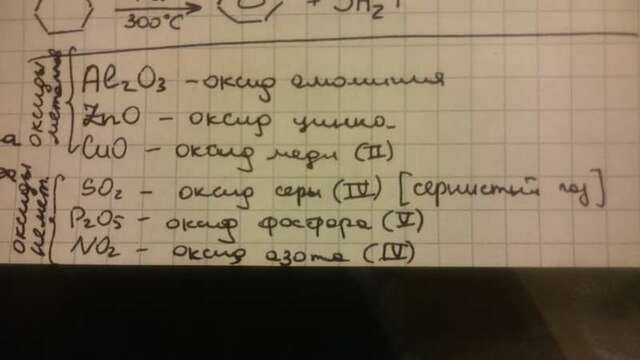 300°C
+ 3H₂↑
а оксиды металлов
Al₂O₃ – оксид алюминия
ZnO – оксид цинка
CuO – оксид меди (II)
б оксиды немет.
SO₂ – оксид серы (IV) [сернистый газ]
P₂O₅ – оксид фосфора (V)
NO₂ – оксид азота (IV)